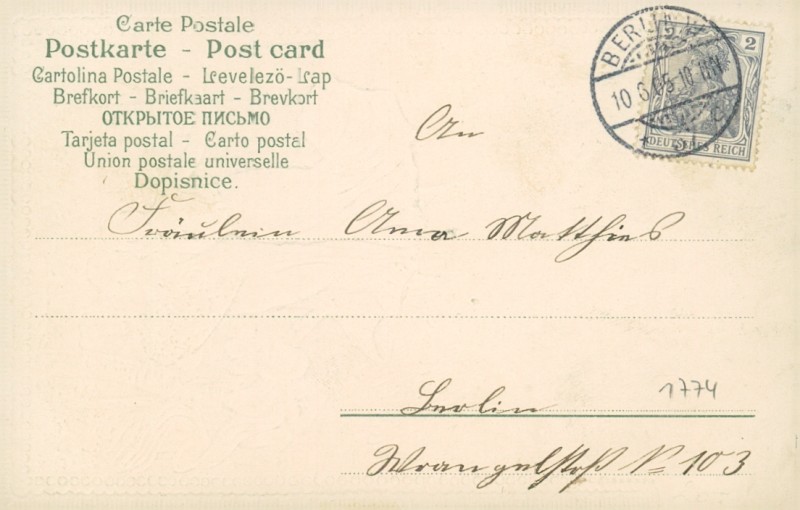 Carte Postale
Postkarte - Post card
Cartolina Postale - Levelezö-Lap
Brefkort - Briefkaart - Brevkort
ОТКРЫТОЕ ПИСЬМО
Tarjeta postal - Carto postal
Union postale universelle
Dopisnice.
BERLIN
10.6.05.10
2
DEUTSCHES REICH
An
Fräulein Anna Matthies
Berlin
1774
Wrangelstraß No 103